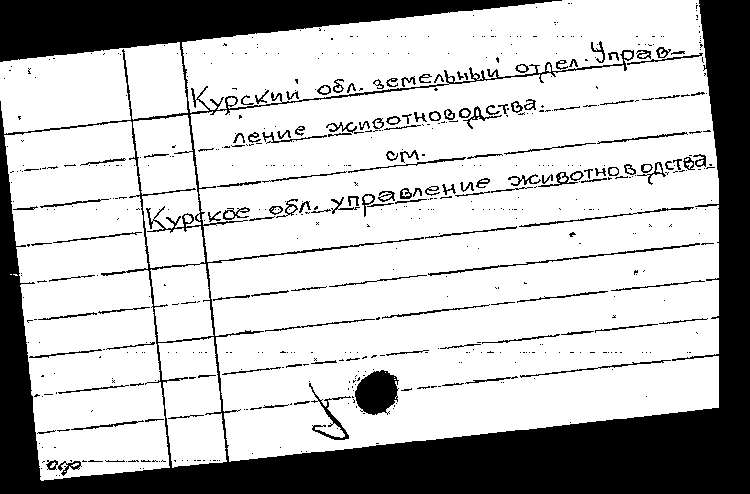 Курский обл. земельный отдел. Управ-
ление животноводства.
см.
Курское обл. управление животноводства.